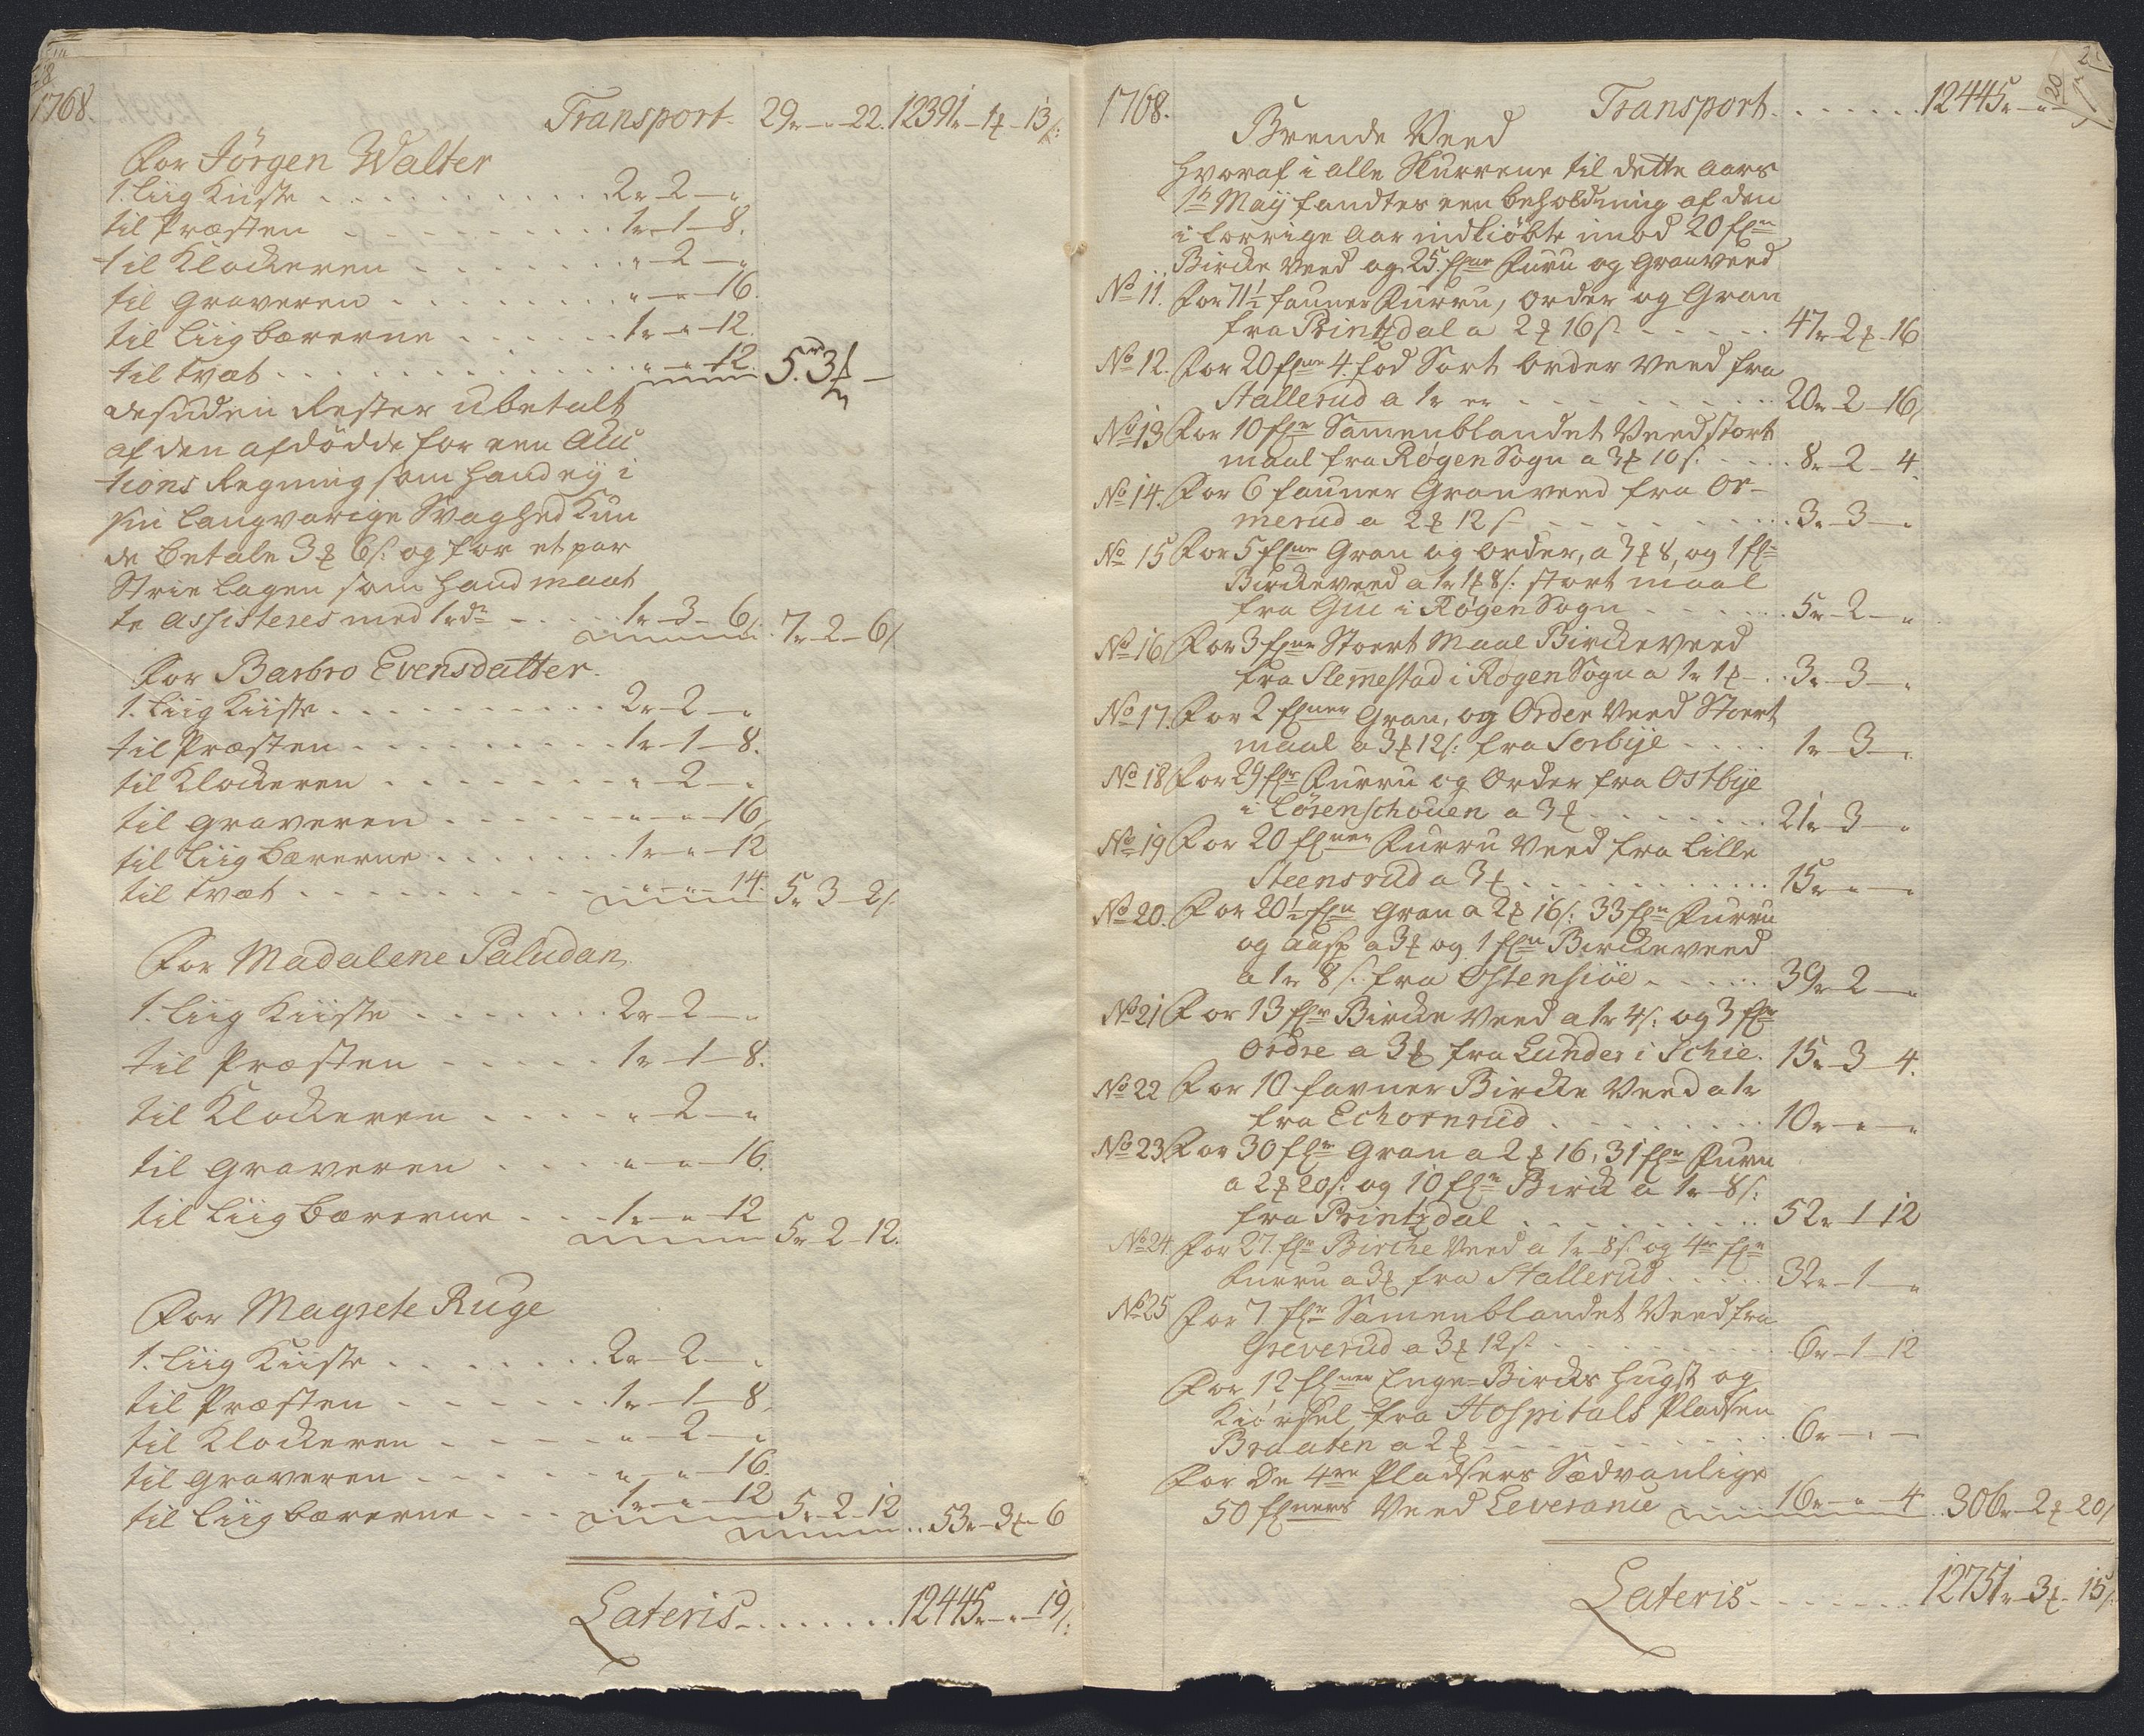 1768.
Transport 29r-"-22. 12391r-1ꝑ-13/:
For Jörgen Walter
1. Liig Kiiste . . . . . . . . . . 2r-2-"
til Præsten . . . . . . . . . 1r-1-8.
til Klockeren . . . . . . . "-2-"
til Graveren . . . . . . . . "-"-16.
til Liigbærerne . . . . . . 1r-"-12.
til Tvæt . . . . . . . . . . . "-"-12. 5.r3ꝑ-
desuden Rester ubetalt
af den afdödde for een Auc
tions Regning som hand ey i
sin langvarige Svaghed Kun
de betale 3ꝑ 6/: og for et par
Strie Lagen som hand maat
te Assisteres med 1rdr . . . 1r-3-6/. 7r-2-6/
For Barbro Evensdatter.
1. Liig Kiiste . . . . . . . . . . 2r-2-"
til Præsten . . . . . . . . . 1r-1-8.
til Klockeren . . . . . . . "-2-"
til Graveren . . . . . . "-"-16/
til Liig bærerne . . . . . . . 1r-"-12
til Tvæt . . . . . . . . . "-"-14. 5r3-2/.
For Madalene Paludan
1. Liig Kiiste . . . . . . . 2r-2-"
til Præsten . . . . . 1r-1-8.
til Klockeren . . . . "-2-"
til Graveren . . . . "-"-16.
til Liig bærerne . . . 1r-"-12 5r-2-12.
For Magrete Ruge
1. Liig Kiiste . . . . . . . 2r-2-"
til Præsten . . . . . . 1r-1-8.
til Klockeren . . . . . "-2-"
til Graveren . . . . . "-"-16.
til Liigbærerne . . . 1r-"-12 5r-2-12 . . 53r-3ꝑ-6
Lateris . . . . . . . . 12445r-"-19/:
1768. Transport . . . . . . 12445r-"-
Brende Veed
Hvoraf i alle Skurrene til dette Aars
1te Maij fandtes een beholdning af den
i forrige Aar indkiöbte imod 20 fhn
Bircke Veed og 25 fhne Furu og Granveed
No 11. For 71½ faûner Furru, Order og Gran
fra Printzdal a 2ꝑ 16/: . . . . . 47r-2ꝑ-16
No 12. For 20 fhne 4. fod Sort Order Veed fra
Stallerud a 1r er . . . . . . . . 20r-2-16/
No 13 For 10 fhne Samenblandet Veed stort
maal fra Røgen Sogn a 3ꝑ 10/: . . . 8r-2-4.
No 14. For 6 faûner Granveed fra Or-
merud a 2ꝑ 12/: . . . . . . . . 3r-3-"
No 15 For 5 fhne Gran og Order, a 3ꝑ 8, og 1 fhn
Birckeveed a 1r 1ꝑ 8/: stort maal
fra Gui i Røgen Sogn . . . . . . 5r-2-"
No 16 For 3 fhne Stoert Maal Birckeveed
fra Slemmestad i Røgen Sogn a 1r 1ꝑ . . 3r-3-"
No 17. For 2 fhner Gran, og Order Veed Stoert
maal a 3ꝑ 12/: fra Sorbÿe . . . . 1r-3-"
No 18 For 29 fhr Furru og Order fra Ostbÿe
i Lörenschouen a 3ꝑ . . . . . . . 21r-3-"
No 19 For 20 fhner Furru Veed fra Lille
Steensrud a 3ꝑ . . . . . . . . . 15r-"-"
No 20. For 20½ fhn Gran a 2ꝑ 16/: 33 fhn Furru
og Aasp a 3ꝑ og 1 fhn Birckeveed
a 1r 8/: fra Ostensiöe . . . . . 39r-2-"
No 21 For 13 fhr Bircke Veed a 1r 4/: og 3 fhr
Ordre a 3ꝑ fra Lunder i Schie. 15r-3-4.
No 22 For 10 favner Bircke Veed a 1r
fra Echornrud . . . . . . . . 10r-"-"
No 23 For 30 fhr Gran a 2ꝑ 16, 31 fhr Furu
a 2ꝑ 20/: og 10 fhn Birck a 1r-8/:
fra Printzdal . . . . . . . . . 52r-1-12
No 24. For 27. fhr Birche Veed a 1r-8/: og 4re fhr
Furru a 3ꝑ fra Stallerud . . . . . 32r-1-"
No 25 For 7 fhr Samenblandet Veed fra
Greverud a 3ꝑ 12/: . . . . . . . . 6r-1-12
For 12 fhner Enge-Bircks Hugst og
Kiörsel fra Hospitals Pladsen
Braaten a 2ꝑ . . . . . . . . . 6r-"-
For De 4re Pladsers Sædvanlige
50 fhners Veed Leverance . . 16r-"-4 306r-2ꝑ-20/
Lateris . . . . . . . 12751r-3ꝑ-15/: